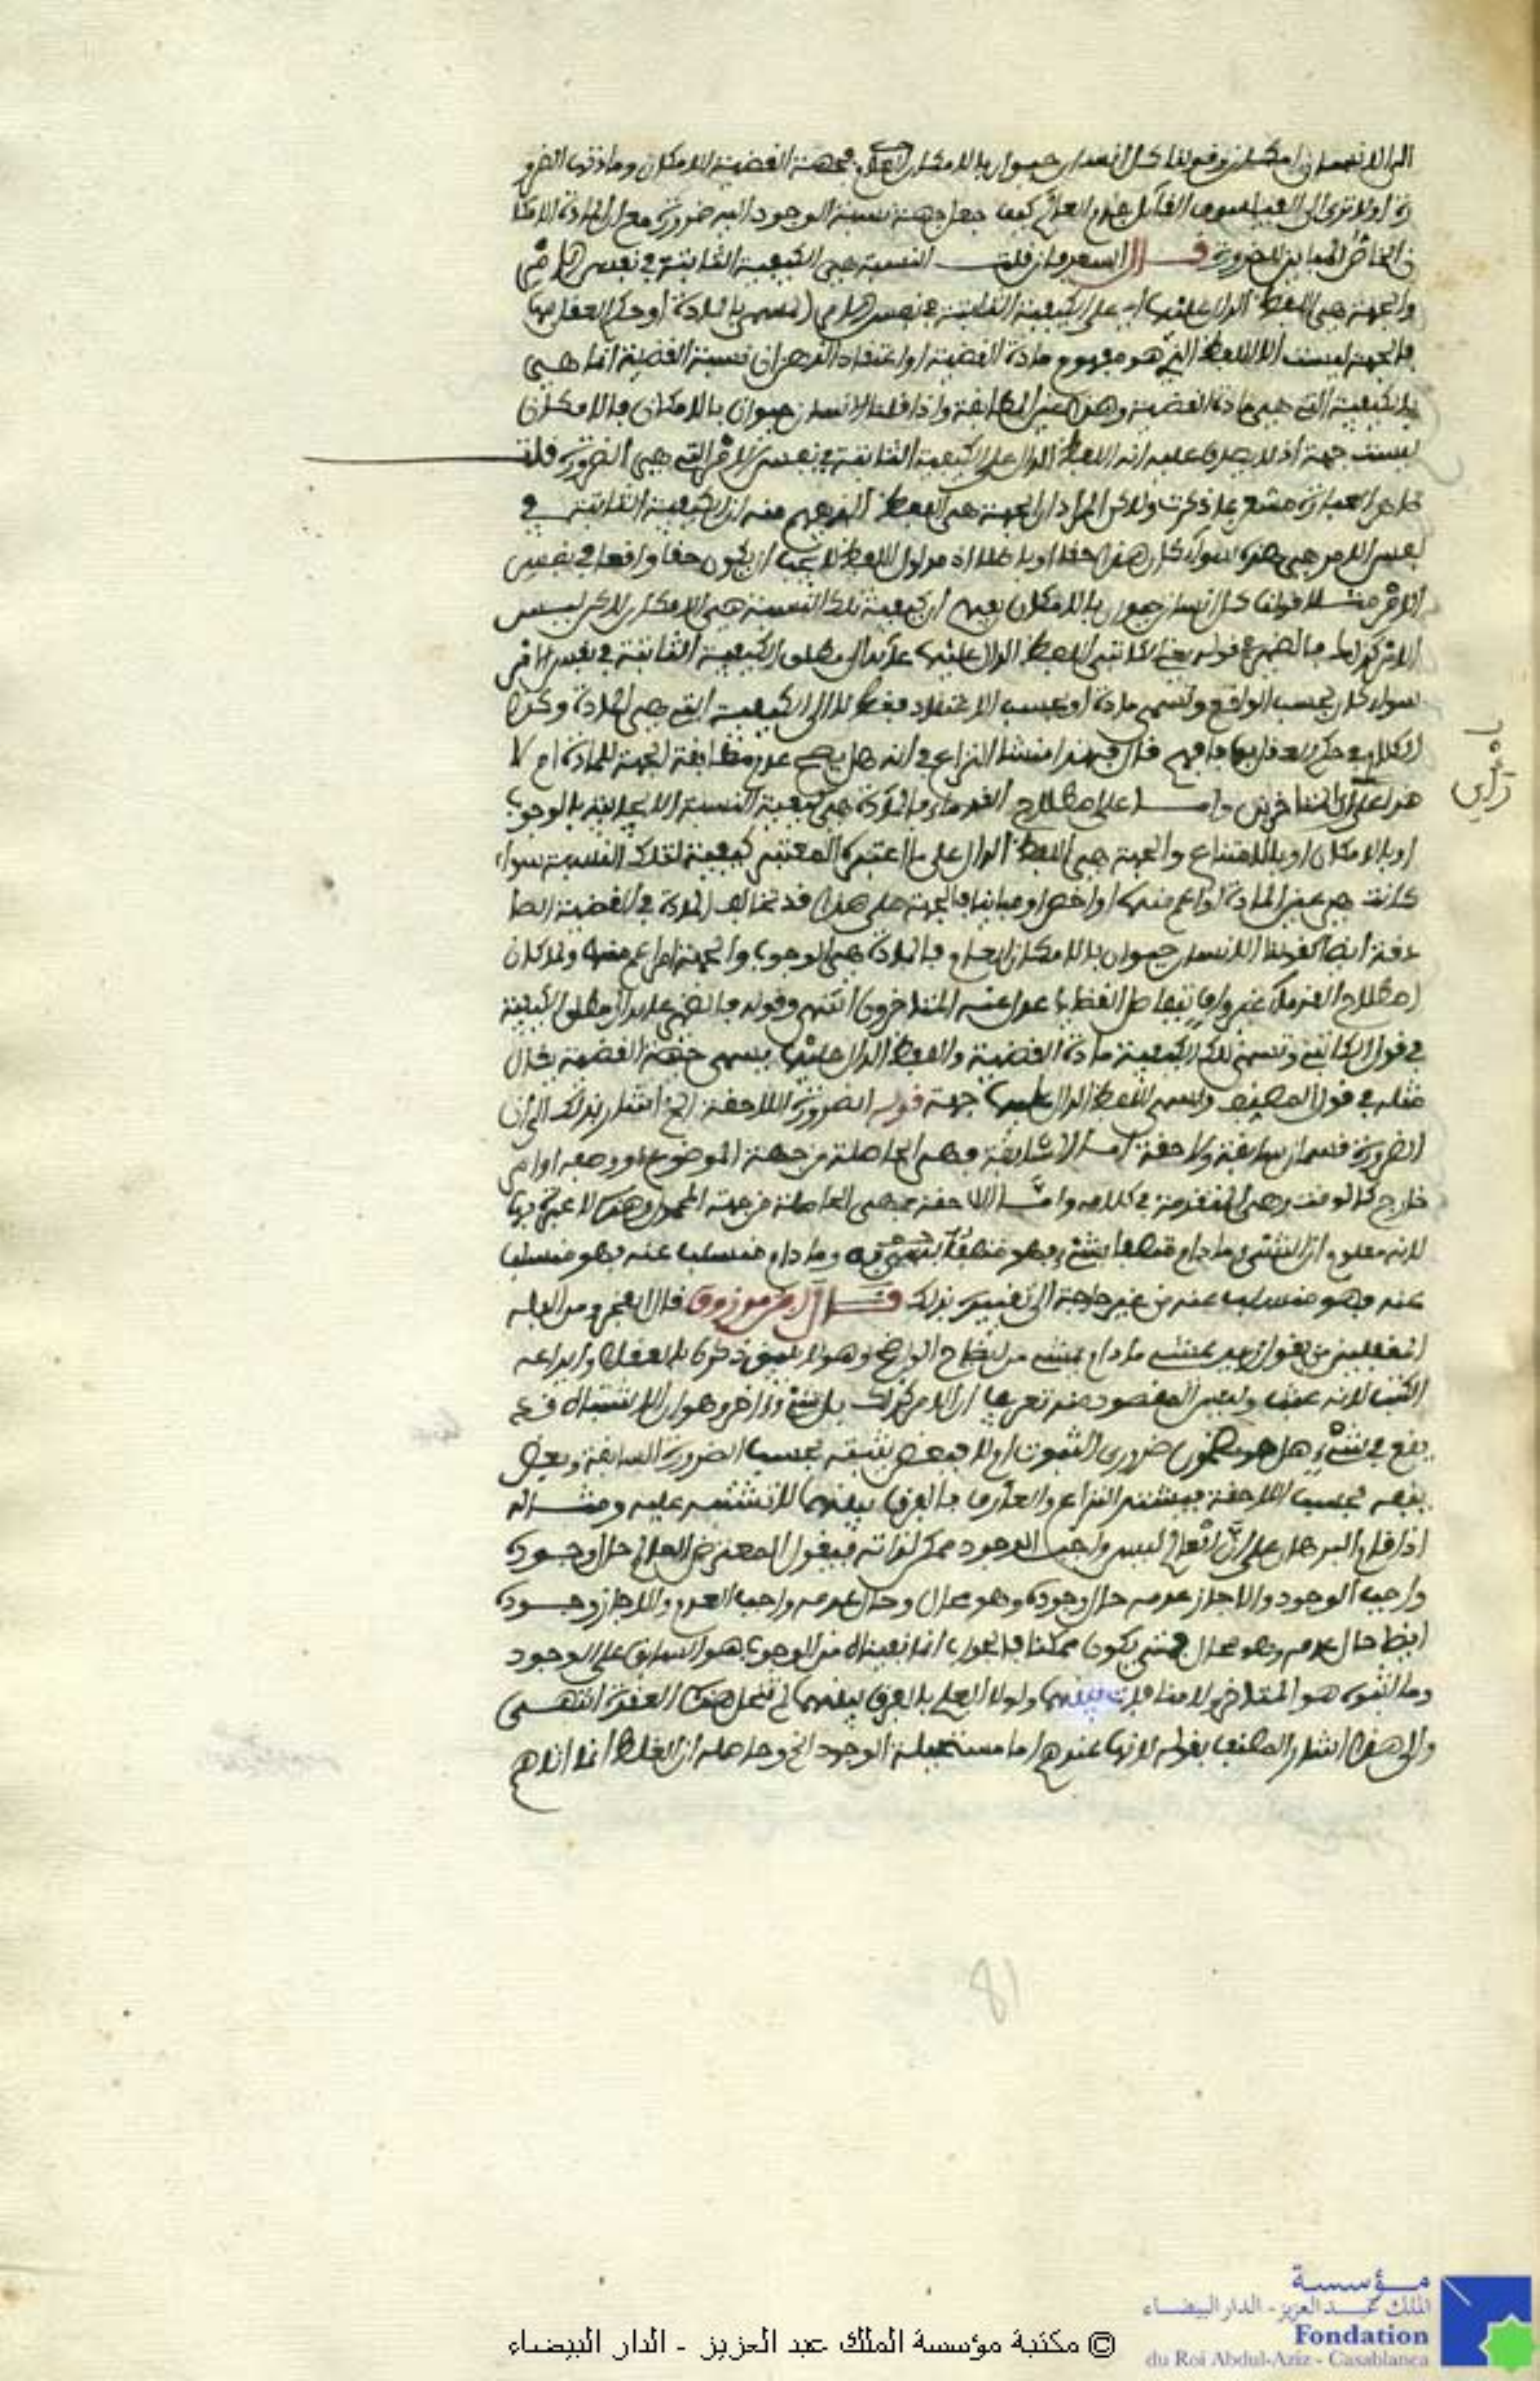 الى الانسان امكان وقولنا كل انسان حيوان بالامكان العام فجهة القضية الامكان ومادتها الضرو
رة اولا ترى الى الفيلسوف القائل بقدم العالم كيف جعل جهة نسبة الوجود اليه ضرورة مع ان المادة الامكا
ن الخاص المباين للضرورة قال السعد فان قلت النسبة هي الكيفية الثابتة في نفس الامر
والجهة هي اللفظ الدال عليها اي على الكيفية الثابتة في نفس الامر المسمى بالمادة او حكم العقل بها
فالجهة ليست الا اللفظ الذي هو مفهوم مادة القضية او اعتقاد الذهن ان نسبة القضية انما هي
بالكيفية التي هي مادة القضية وهذا عين المطابقة واذا قلنا الانسان حيوان بالامكان فالامكان
ليست جهة اذ لا يصدق عليه انه اللفظ الدال على الكيفية الثابتة في نفس الامر التي هي الضرورة قلت
ظاهر العبارة مشعر بما ذكرت ولاكن المراد ان الجهة هي اللفظ الذي يفهم منه ان الكيفية الثابتة في
نفس الامر هي هذه سواء كان هذا حقا او باطلا اذ مدلول اللفظ لا يجب ان يكون حقا واقعا في نفس
الامر مثلا قولنا كل انسان حيوان بالامكان يفهم ان كيفية تلك النسبة هي الامكان لاكن ليس
الامر كذلك فالضمير في قوله يعني الكاتبي اللفظ الدال عليها عائد الى مطلق الكيفية الثابتة في نفس الامر
سواء كان بحسب الواقع وتسمى مادة او بحسب الاعتقاد فقط لا الى الكيفية التي هي المادة وكذا
الكلام في حكم العقل بها فافهم قال فهذا منشا النزاع في انه هل يصح عدم مطابقة الجهة للمادة ام لا
هذا على راي المتاخرين واما على اصطلاح القدماء فالمادة هي كيفية النسبة الايجابية بالوجوب
او بالامكان او بالامتناع والجهة هي اللفظ الدال على ما اعتبره المعتبر كيفية لتلك النسبة سواء
كانت هي عين المادة او اعم منها او اخص او مباينا فالجهة على هذا قد تخالف المادة في القضية الصا
دقة ايضا كقولنا الانسان حيوان بالامكان العام فالمادة هي الوجوب والجهة امر اعم منها ولما كان
اصطلاح القدماء غير واف بتفاصيل القضايا عدل عنه المتاخرون انتهى وقوله فالضمير عائد الى مطلق الكيفية
في قول الكاتبي وتسمى تلك الكيفية مادة القضية واللفظ الدال عليها يسمى جهة القضية يقال
مثله في قول المصنف ويسمى اللفظ الدال عليها جهة قوله الضرورة اللاحقة الخ اشار بذلك الى ان
الضرورة قسمان سابقة ولاحقة اما السابقة فهي الحاصلة من جهة الموضوع او وصفه او امر
خارج كالوقت وهي المتقدمة في كلامه واما اللاحقة فهي الحاصلة من جهة المحمول وهذه لا عبرة بها
لانه معلوم ان الشيء ما دام متصفا بشيء فهو متصف به وما دام منسلبا عنه فهو منسلب
عنه فهو منسلب عنه من غير حاجة الى تقييده بذلك قال ابن مرزوق قال الفخر ومن الغلط
للمغفلين من يقول زيد يمشي ما دام يمشي من ايضاح الواضح وهو لا يليق ذكره بالعقلاء وايداعه
الكتب لانه عبث وليس المقصود منه تعريف ان الامر كذلك بل شيء اخر وهو ان الاشتباه قد
يقع في شيء هل هو ضروري الثبوت او لا فبعض يثبته بحسب الضرورة السابقة وبعض
ينفيه بحسب اللاحقة فيشتد النزاع والعارف بالفرق بينهما لا تشتبه عليه ومثاله
اذا قام البرهان على ان العالم ليس واجب الوجود ممكن لذاته فيقول المعترض العالم حال وجوده
واجب الوجود والا جاز عدمه حال وجوده وهو محال وحال عدمه واجب العدم والا جاز وجوده
ايضا حال عدمه وهو محال فمتى يكون ممكنا فالجواب انما نفيناه من الوجوب هو السابق على الوجود
وما اثبتوه هو المتاخر فلا منافاة بينهما ولولا العلم بالفرق بينهما لم تنحل هذه العقدة انتهى
والى هذا اشار المصنف بقوله لانها عندهم اما مستحيلة الوجود الخ وحاصله ان الغلط انما اتاهم
راي
18
مؤسسة
الملك عبد العزيز - الدار البيضاء
Fondation
du Roi Abdul-Aziz - Casablanca
© مكتبة مؤسسة الملك عبد العزيز - الدار البيضاء